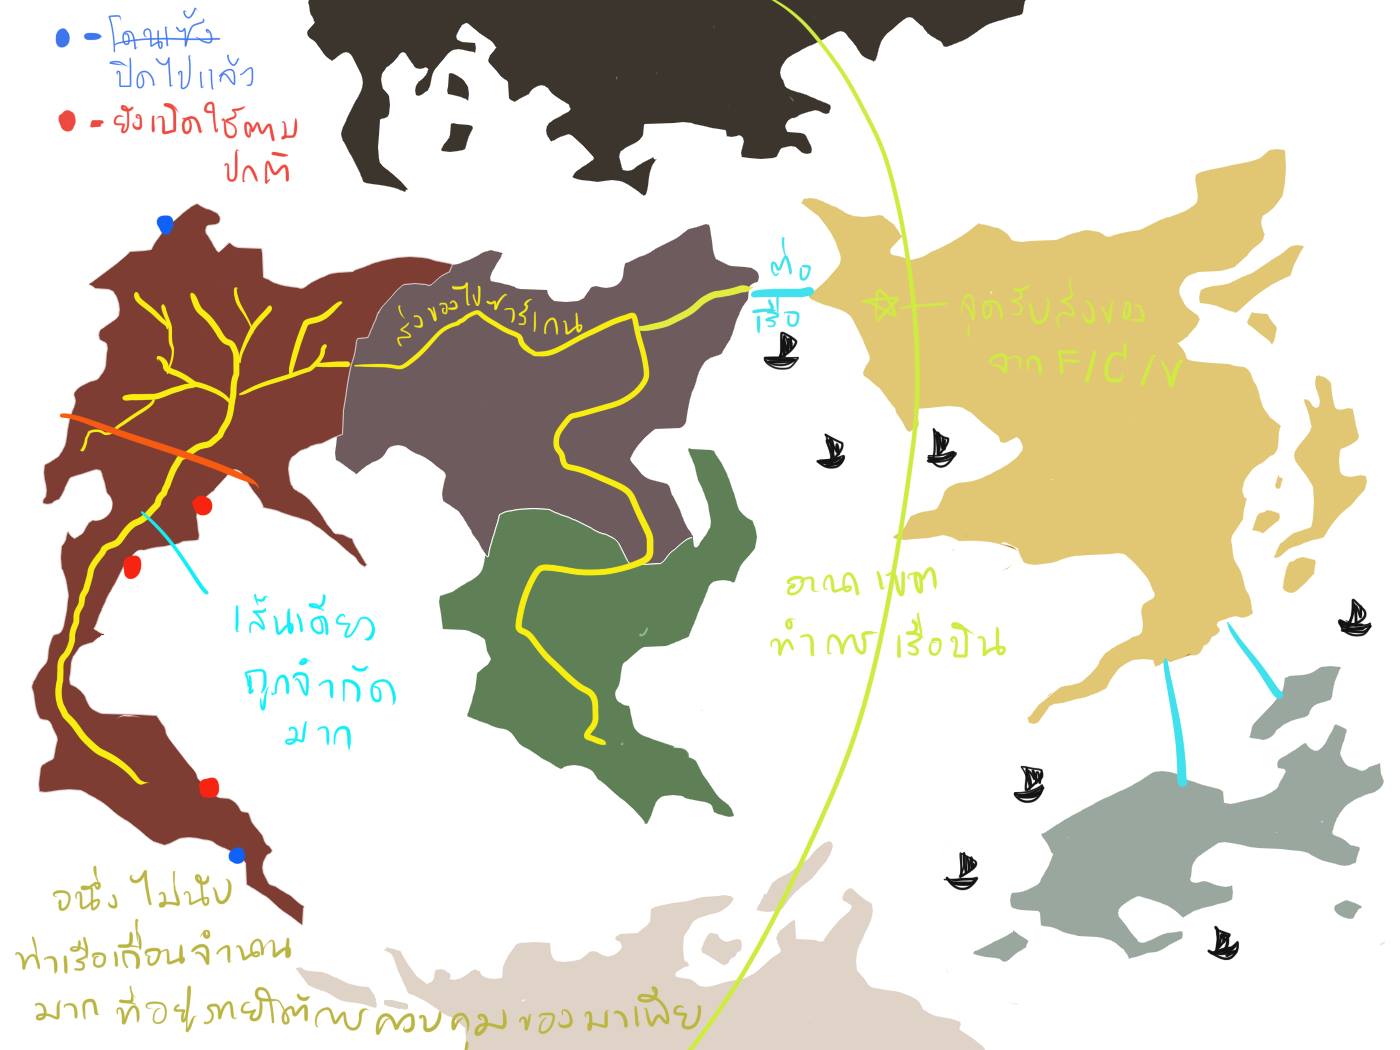 - โดนเซ้ง
ปิดไปแล้ว
- ยังเปิดใช้ตาม
ปกติ
ส่งของไปซาร์เกน
ต่อ
เรือ
จุดรับส่งของ
จาก F/C/V
อาณาเขต
ทำการเรือบิน
เส้นเดียว
ถูกจำกัด
มาก
อนึ่ง ไม่นับ
ท่าเรือเถื่อนจำนวน
มาก ที่อยู่ภายใต้การควบคุมของมาเฟีย